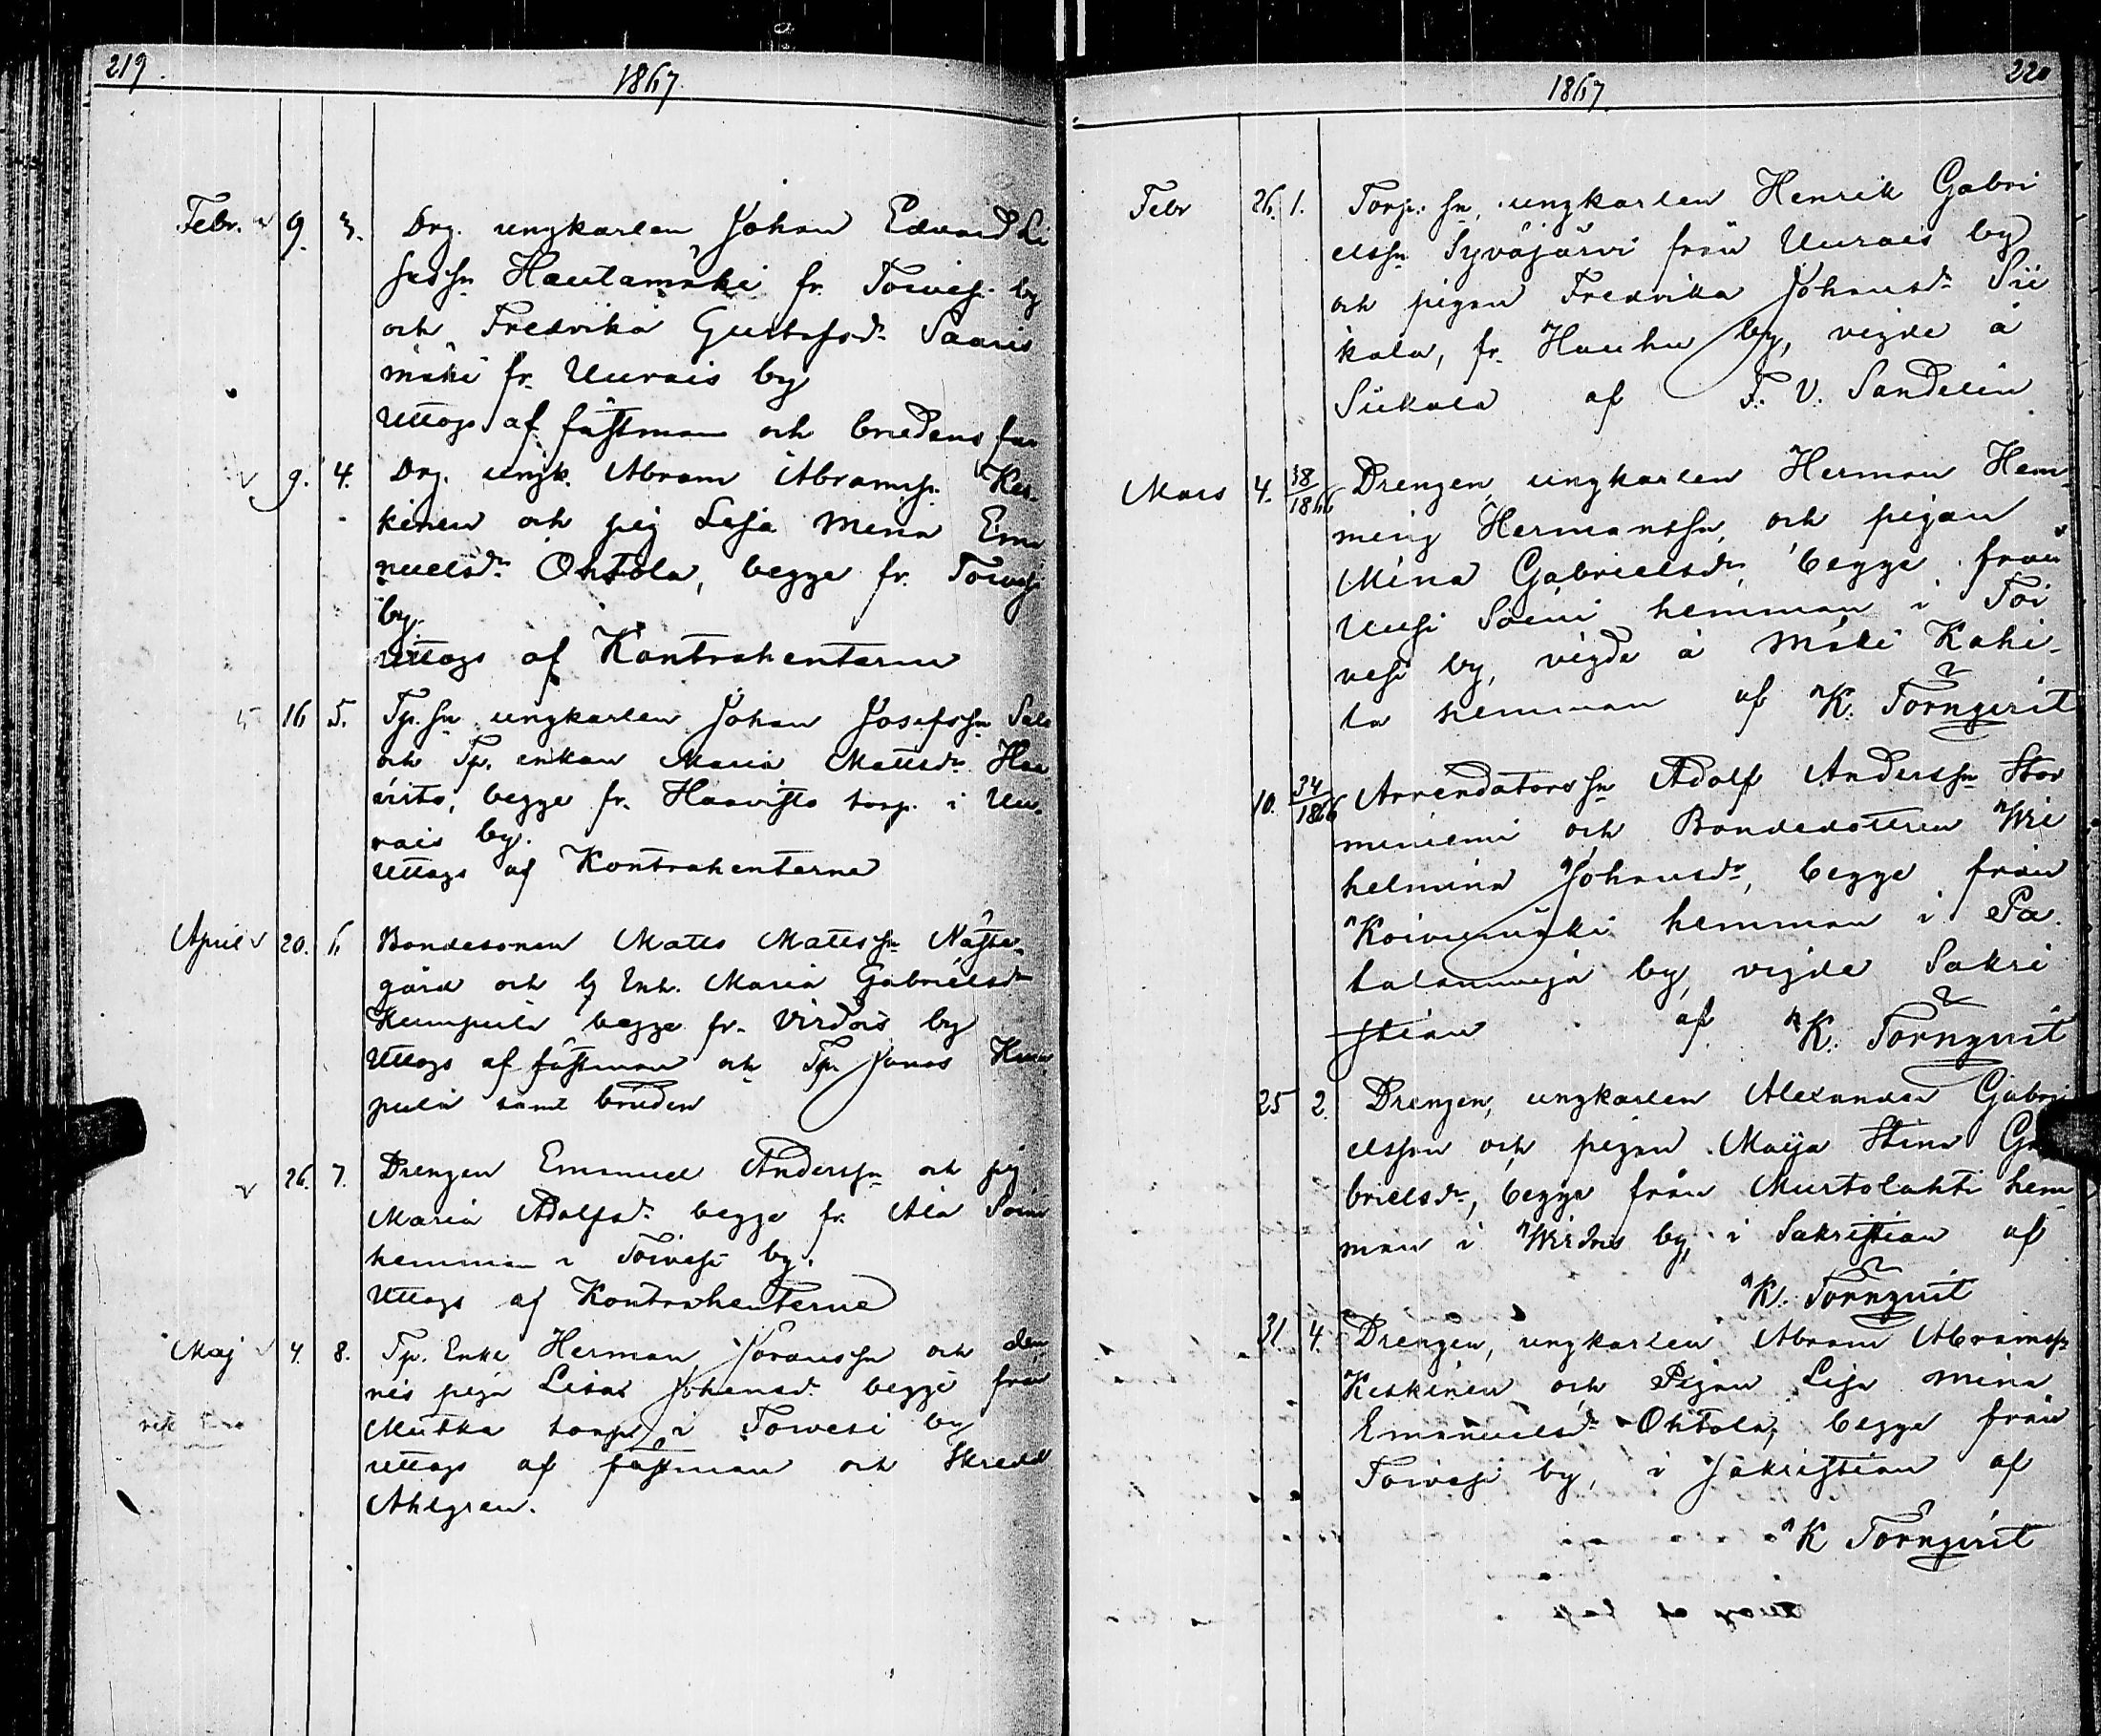 219.
1867.
Febr. 9. 3. Drg. ungkarlen Johan Edvard Li
sasn Hautamäki fr. Toivesi by
och Fredrika Gustafsdr Saaris
mäki fr. Uurais by
Uttogs af fästman och brudens far
9. 4. Drg. ungk. Abram Abramss. Kes-
kinen och pig Lesa Mina Ema
nuelsdr Ohtola, begge fr. Toivesi
by.
Uttogs af Kontrahenterne
16 5. Tp. sn ungkarlen Johan Josefssn Salo
och Tp. enkan Maria Mattsdr Haa
visto, begge fr. Haavisto torp. i Uu-
rais by.
Uttogs af Kontrahenterne
April 20. 6. Bondesonen Matts Mattssn Näste-
gård och Inh. Maria Gabrielsdr
Kumpula begge fr. Virdois by
Uttogs af fästman och Tp. Jonas Kum
pula samt bruden
26. 7. Drengen Emanuel Anderssn och pig
Maria Adolfsdr begge fr. Ala Soini
hemman i Toivesi by.
Uttogs af Kontrahenterne
Maj 4. 8. Tp. Enkl Herman Göranssn och den
nes piga Lisa Johansdr begge från
Mutka torp i Toivesi by
uttogs af fästman och Skredd
Ahlgren.
1867
220
Febr 26. 1. Torp. sn, ungkarlen Henrik Gabri
elssn Syväjärvi från Uurais by
och pigan Fredrika Johansdr Sii
kala, fr. Hauhu by, vigde å
Siikala af F. V. Sandelin
Mars 4. 38/1866 Drengen, ungkarlen Herman Hem-
ming Hermanssn, och pigan
Mina Gabrielsdr, begge från
Uusi Soini hemman i Toi
vesi by, vigde å Mäki Kahi-
la hemman af K. Törnqvist
10. 34/1866 Arrendators sn Adolf Anderssn Stor
miniemi och Bondedottren Wil
helmina Johansdr, begge från
Koivumäki hemman i Pa
talanmaja by, vigde Sakri
stian af K. Törnqvist
25 2. Drengen, ungkarlen Alexander Gabri
elsson och pigan Maija Stina Ga
brielsdr, begge från Murtolahti hem-
man i Wirdois by, i Sakristian af
K. Törnqvist
31. 4. Drengen, ungkarlen Abram Abramss.
Keskinen och Pigan Lesa Mina
Emanuelsdr Ohtola, begge från
Toivesi by, i Sakristian af
K Törnqvist